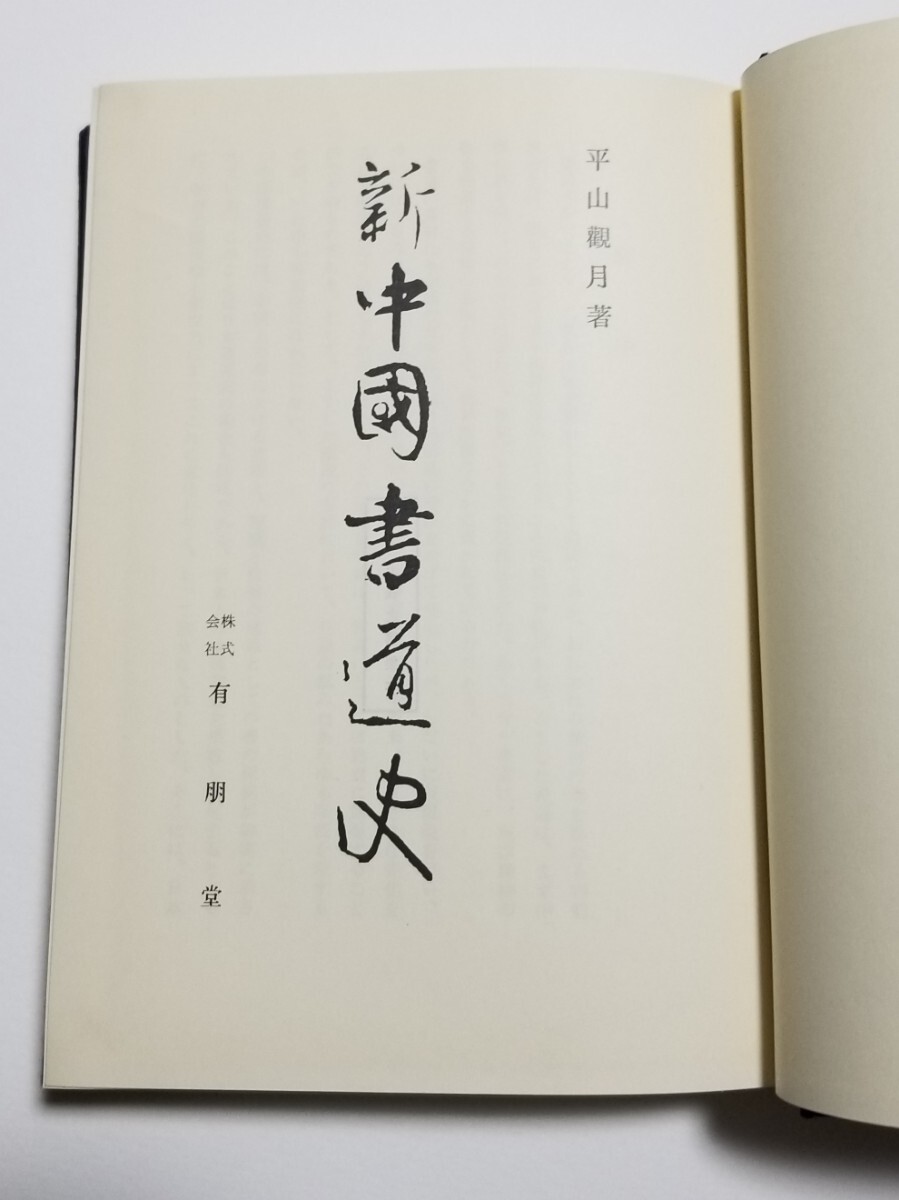 平山觀月著
新中國書道史
株式会社有朋堂